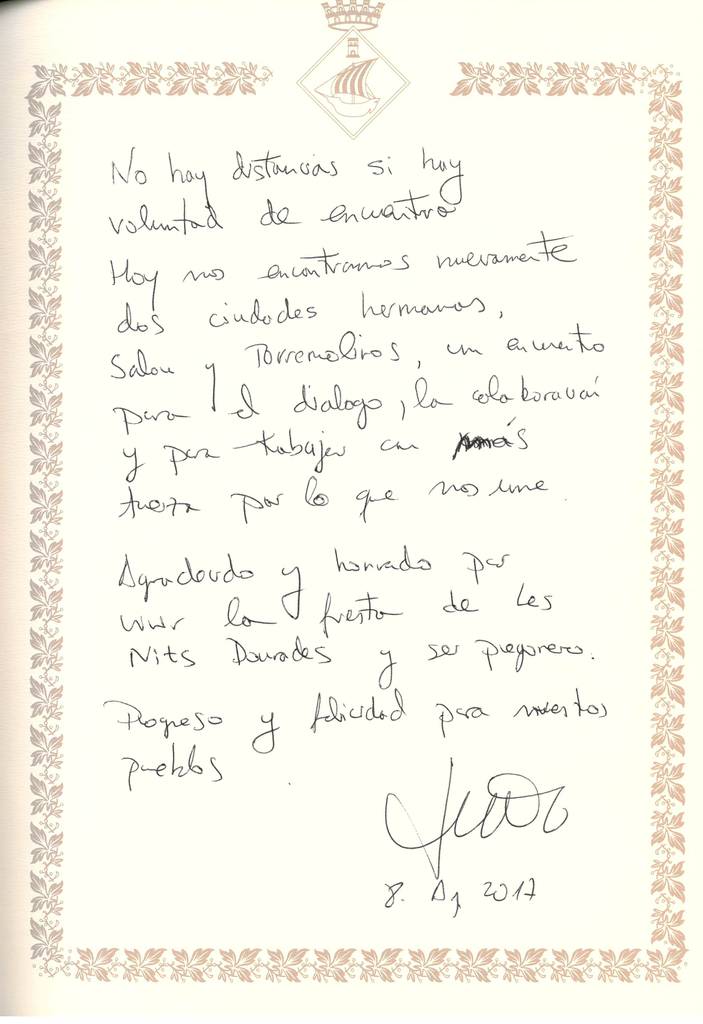 No hay distancias si hay
voluntad de encuentro
Hoy nos encontramos nuevamente
dos ciudades hermanas,
Salou y Torremolinos, un encuentro
para el dialogo, la colaboración
y para trabajar con más
fuerza por lo que nos une.
Agradecido y honrado por
vivir la fiesta de Les
Nits Daurades y ser pregonero.
Progreso y felicidad para nuestros
pueblos
8. Ag 2017